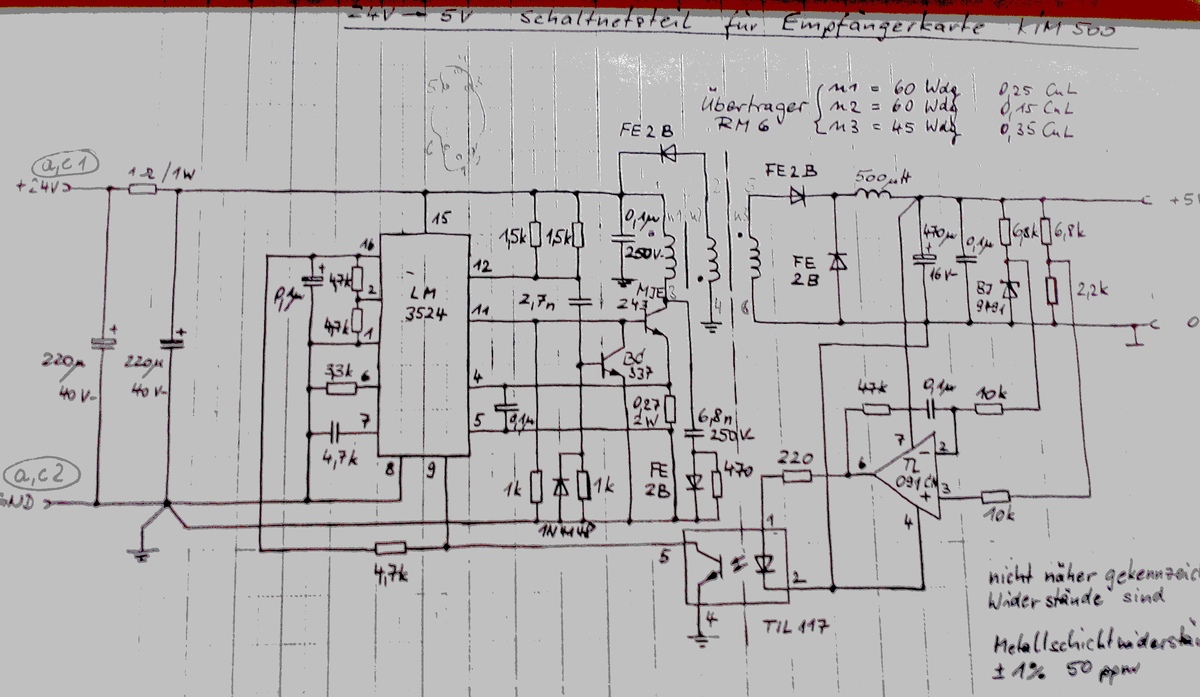 24V → 5V Schaltnetzteil für Empfängerkarte KIM 500
Übertrager RM6
n1 = 60 Wdg 0,25 CuL
n2 = 60 Wdg 0,15 CuL
n3 = 45 Wdg 0,35 CuL
FE2B
a,c1
+24V
1Ω/1W
FE2B
500µH
+5V
15
16
1,5k
1,5k
0,1µ
250V-
n1
n2
n3
470µ
16V-
0,1µ
6,8k
6,8k
FE
2B
0,1µ
47k
2
LM
3524
12
2,7n
MJE
243
3
4
6
2,2k
47k
1
11
0
220µ
40V-
220µ
40V-
33k
6
4
BC
337
0,27
2W
6,8n
250V-
47k
0,1µ
10k
7
5
0,1µ
4,7k
8
9
a,c2
GND
1k
1k
1N4148
FE
2B
470
220
6
7
2
TL
091CN
3
4
10k
4,7k
5
1
2
4
TIL 117
nicht näher gekennzeic
Widerstände sind
Metallschichtwiderstä
± 1% 50 ppm